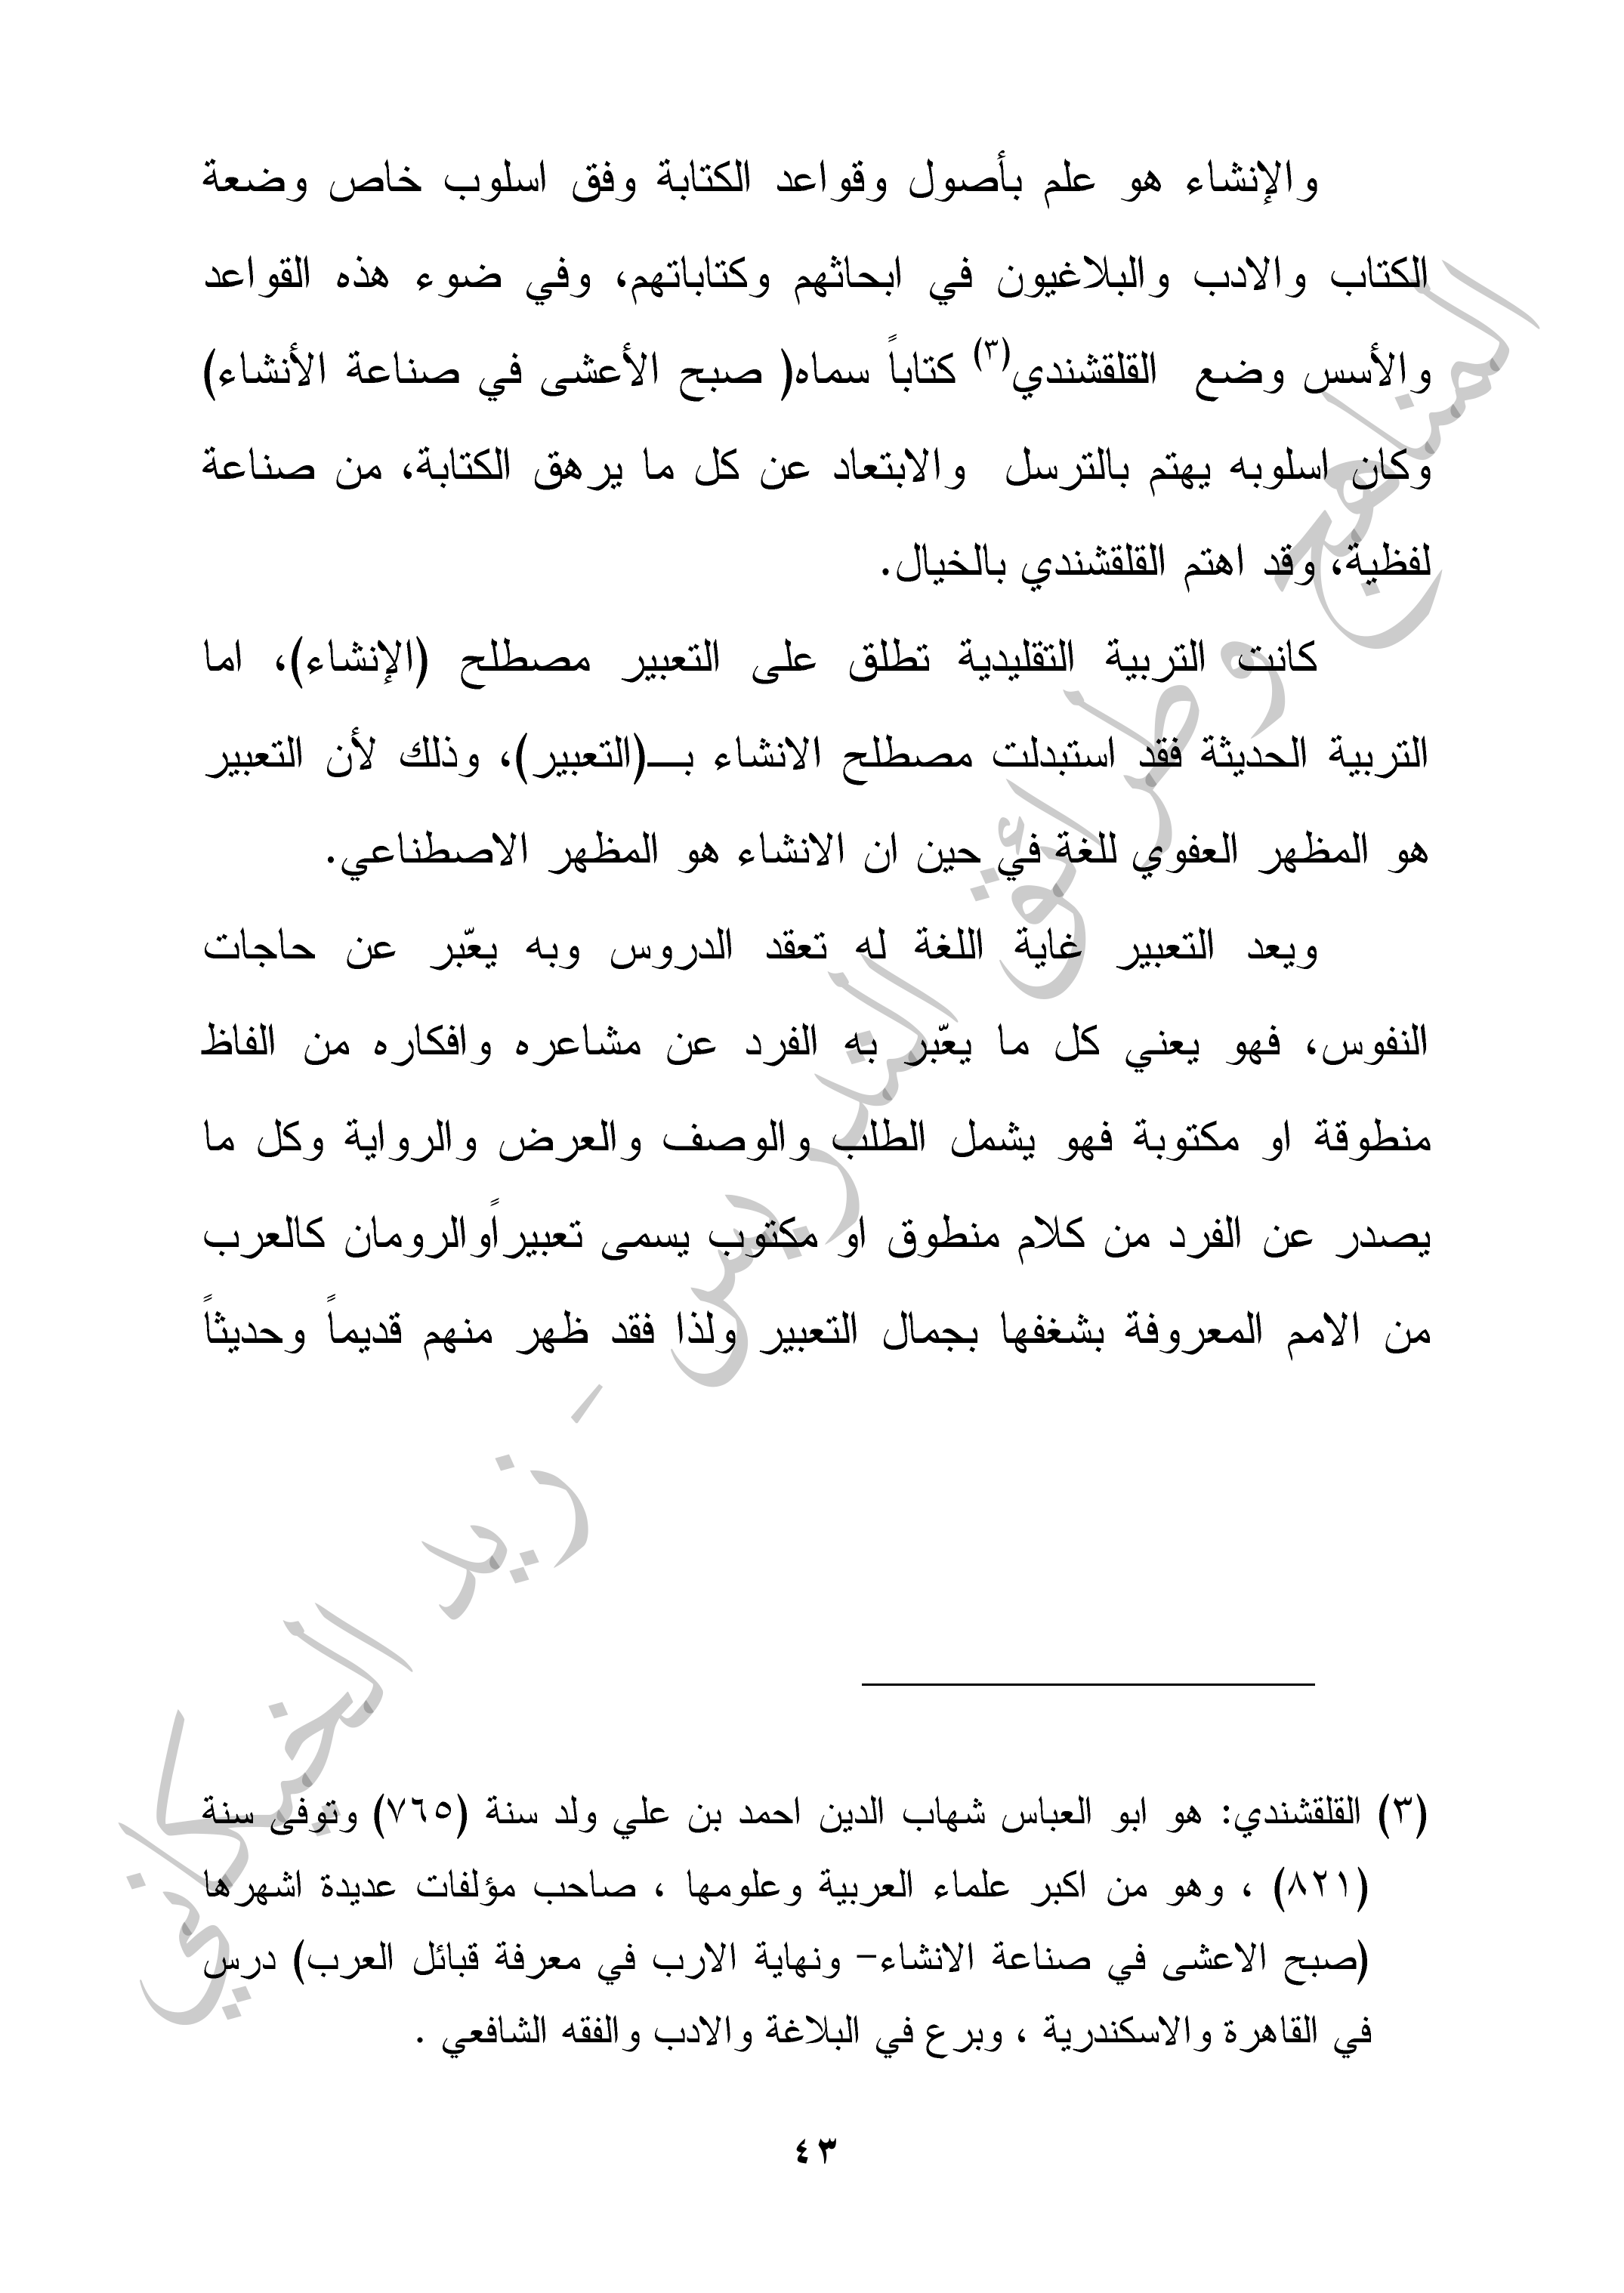 والإنشاء هو علم بأصول وقواعد الكتابة وفق اسلوب خاص وضعة
الكتاب والادب والبلاغيون في ابحاثهم وكتاباتهم، وفي ضوء هذه القواعد
والأسس وضع القلقشندي(٣) كتاباً سماه( صبح الأعشى في صناعة الأنشاء)
وكان اسلوبه يهتم بالترسل والابتعاد عن كل ما يرهق الكتابة، من صناعة
لفظية، وقد اهتم القلقشندي بالخيال.
كانت التربية التقليدية تطلق على التعبير مصطلح (الإنشاء)، اما
التربية الحديثة فقد استبدلت مصطلح الانشاء بـــ(التعبير)، وذلك لأن التعبير
هو المظهر العفوي للغة في حين ان الانشاء هو المظهر الاصطناعي.
ويعد التعبير غاية اللغة له تعقد الدروس وبه يعّبر عن حاجات
النفوس، فهو يعني كل ما يعّبر به الفرد عن مشاعره وافكاره من الفاظ
منطوقة او مكتوبة فهو يشمل الطلب والوصف والعرض والرواية وكل ما
يصدر عن الفرد من كلام منطوق او مكتوب يسمى تعبيراًوالرومان كالعرب
من الامم المعروفة بشغفها بجمال التعبير ولذا فقد ظهر منهم قديماً وحديثاً
(٣) القلقشندي: هو ابو العباس شهاب الدين احمد بن علي ولد سنة (٧٦٥) وتوفى سنة
(٨٢١) ، وهو من اكبر علماء العربية وعلومها ، صاحب مؤلفات عديدة اشهرها
(صبح الاعشى في صناعة الانشاء- ونهاية الارب في معرفة قبائل العرب) درس
في القاهرة والاسكندرية ، وبرع في البلاغة والادب والفقه الشافعي .
٤٣
المناهج وطرائق التدريس - زيد الخيكاني